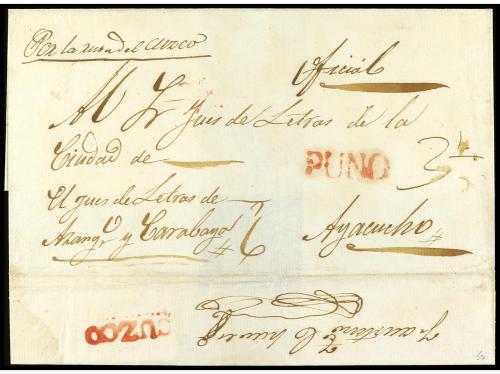 Por la ruta del Cuzco
Oficial
Al Sr. Jues de Letras de la
Ciudad de
PUNO
El jues de Letras de
Azango y Carabaya
Ayacucho
CUZCO